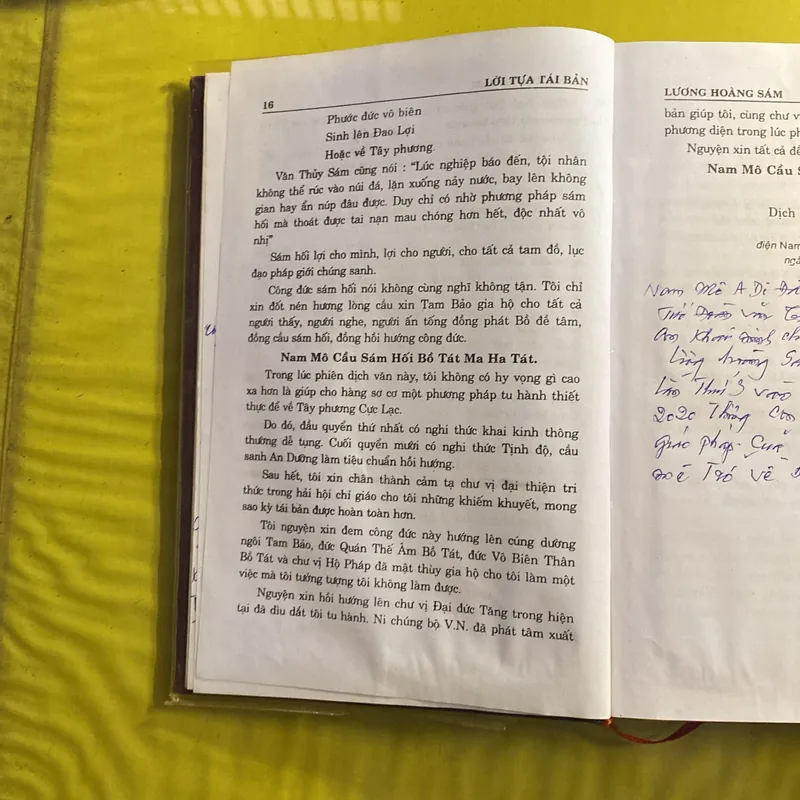 16
LỜI TỰA TÁI BẢN
Phước đức vô biên
Sinh lên Đao Lợi
Hoặc về Tây phương.
Văn Thủy Sám cũng nói : "Lúc nghiệp báo đến, tội nhân
không thể rúc vào núi đá, lặn xuống nảy nước, bay lên không
gian hay ẩn núp đâu được. Duy chỉ có nhờ phương pháp sám
hối mà thoát được tai nạn mau chóng hơn hết, độc nhất vô
nhị"
Sám hối lợi cho mình, lợi cho người, cho tất cả tam đồ, lục
đạo pháp giới chúng sanh.
Công đức sám hối nói không cùng nghĩ không tận. Tôi chỉ
xin đốt nén hương lòng cầu xin Tam Bảo gia hộ cho tất cả
người thấy, người nghe, người ấn tống đồng phát Bồ đề tâm,
đồng cầu sám hối, đồng hồi hướng công đức.
Nam Mô Cầu Sám Hối Bồ Tát Ma Ha Tát.
Trong lúc phiên dịch văn này, tôi không có hy vọng gì cao
xa hơn là giúp cho hàng sơ cơ một phương pháp tu hành thiết
thực để về Tây phương Cực Lạc.
Do đó, đầu quyển thứ nhất có nghi thức khai kinh thông
thường dễ tụng. Cuối quyển mười có nghi thức Tịnh độ, cầu
sanh An Dưỡng làm tiêu chuẩn hồi hướng.
Sau hết, tôi xin chân thành cảm tạ chư vị đại thiện tri
thức trong hải hội chỉ giáo cho tôi những khiếm khuyết, mong
sao kỳ tái bản được hoàn toàn hơn.
Tôi nguyện xin đem công đức này hướng lên cúng dường
ngôi Tam Bảo, đức Quán Thế Âm Bồ Tát, đức Vô Biên Thân
Bồ Tát và chư vị Hộ Pháp đã mật thùy gia hộ cho tôi làm một
việc mà tôi tưởng tượng tôi không làm được.
Nguyện xin hồi hướng lên chư vị Đại đức Tăng trong hiện
tại đã dìu dắt tôi tu hành. Ni chúng bộ V.N. đã phát tâm xuất
LƯƠNG HOÀNG SÁM
bản giúp tôi, cùng chư v
phương diện trong lúc ph
Nguyện xin tất cả đề
Nam Mô Cầu S
Dịch
điện Nam
ngà
Nam Mô A Di
2020
pháp.
Trở về